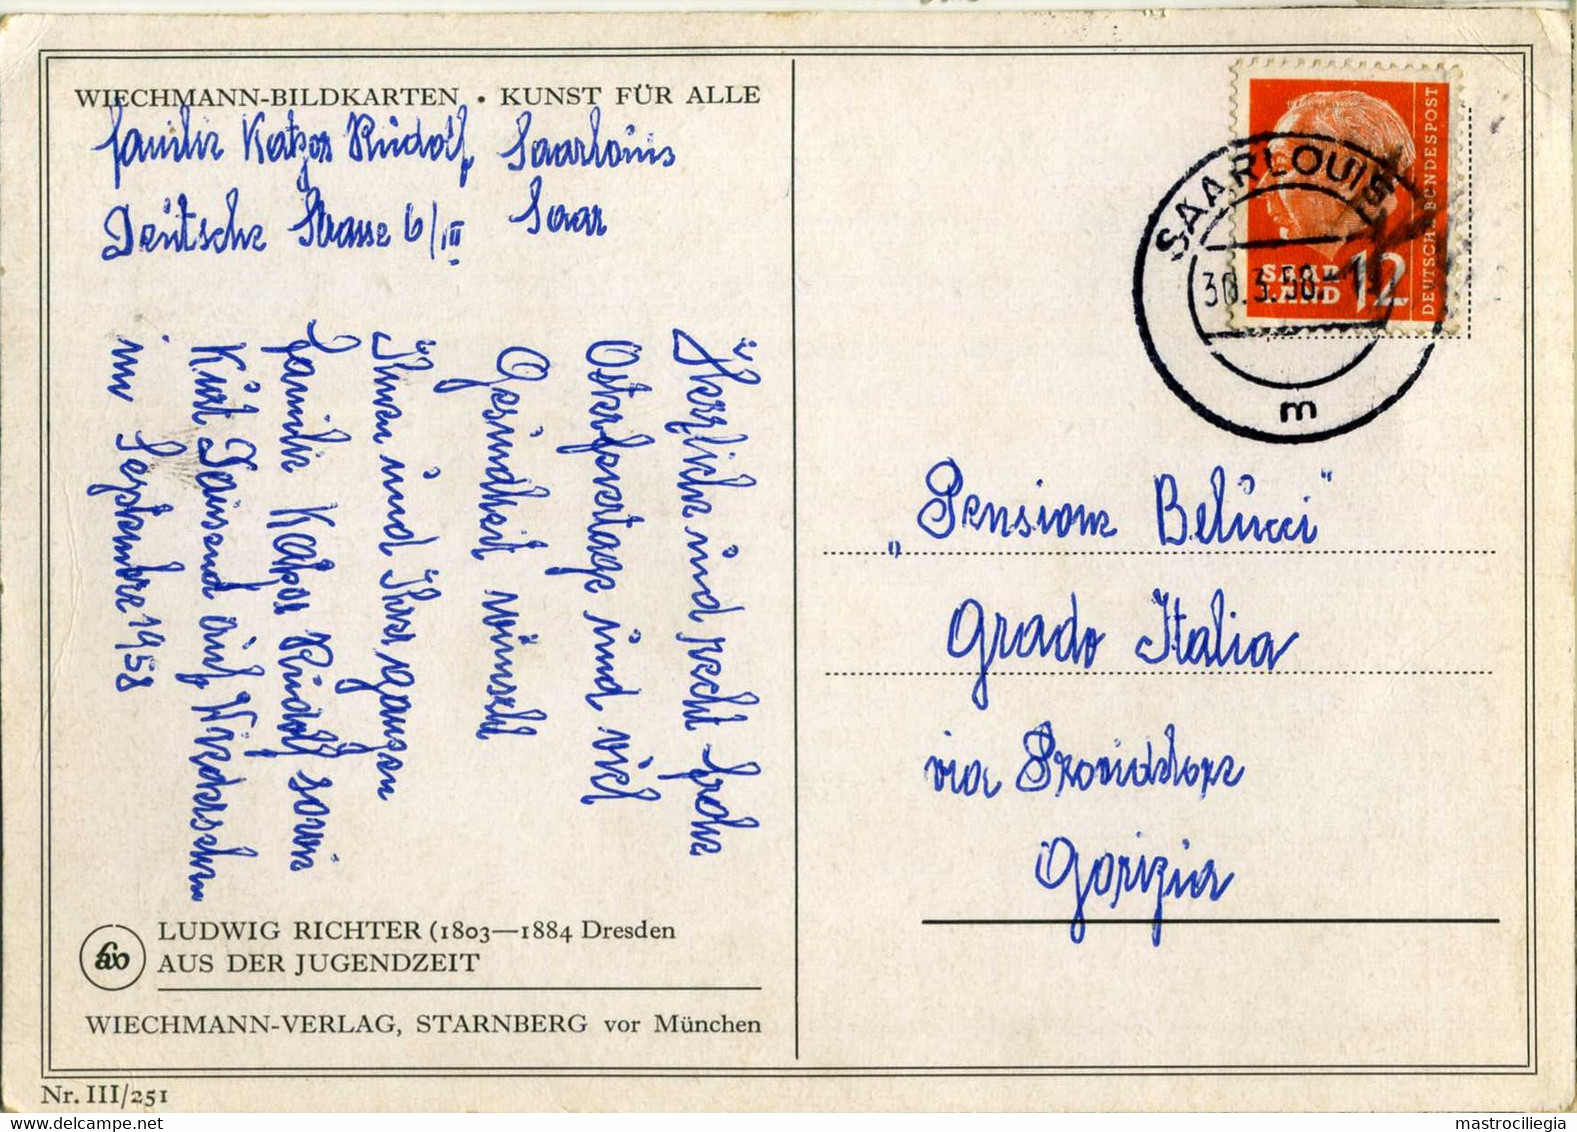 WIECHMANN-BILDKARTEN · KUNST FÜR ALLE
Familie Katzer Rudolf, Saarlouis
Deutsche Strasse 6/III Saar
Herzliche und recht frohe
Osterfeiertage und viel
Gesundheit wünscht
Ihnen und Ihrer ganzen
Familie Rudolf sowie
Kurt Tausend auf Wiedersehn
im September 1958
LUDWIG RICHTER (1803—1884 Dresden
AUS DER JUGENDZEIT
WIECHMANN-VERLAG, STARNBERG vor München
Nr. III/251
SAARLOUIS
30.3.58
m
SAAR
LAND 12
DEUTSCHE BUNDESPOST
„Pensione Belucci“
Grado Italia
via Providetore
Gorizia
mastrociliegia